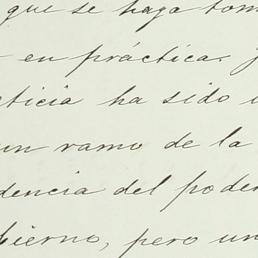 que se haga tom
en práctica. J
ticia ha sido
un ramo de la
dencia del poder
bierno, pero un